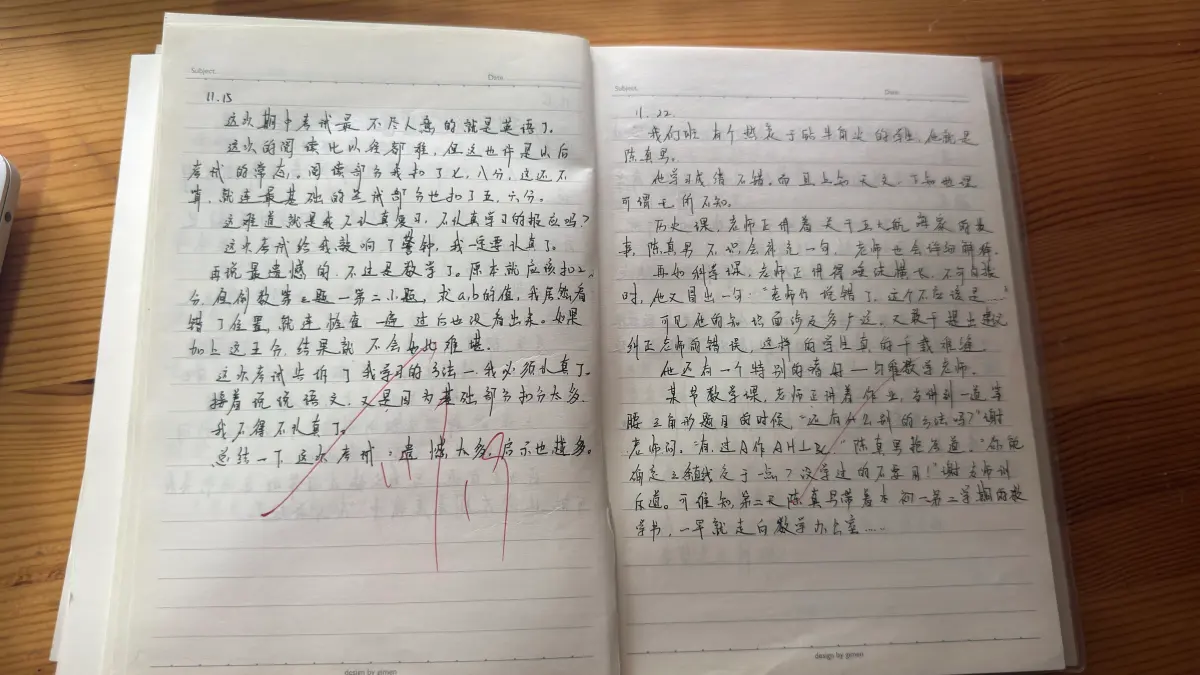 Subject.
Date
11.15
这次期中考试最不尽人意的就是英语了。
这次的阅读比以往都难，但这也许是以后
考试的常态。阅读部分我扣了七，八分，这还不
算，就连最基础的笔试部分也扣了五，六分。
这难道就是我不认真复习，不认真学习的报应吗？
这次考试给我敲响了警钟，我一定要认真了。
再说最遗憾的，不过是数学了。原本就应该扣2
分，但倒数第二题一第二小题，求a,b的值，我居然看
错了位置，就连检查一遍过后也没看出来。如果
加上这三分，结果就不会如此难堪。
这次考试告诉了我学习的方法一我必须认真了。
接着说说语文，又是因为基础部分扣分太多，
我不得不认真了。
总结一下，这次考试：遗憾太多，启示也挺多。
11
19
design by gimen
Subject.
Date
11.22.
我们班有个热衷于钻牛角尖的学生，他就是
陈真男。
他学习成绩不错。而且上知天文，下知地理
可谓无所不知。
历史课，老师正讲着关于五大航海家的故
事，陈真男不识会补充一句，老师也会详细解释。
再如科学课，老师正讲得唾沫横飞，不可自拔
时，他又冒出一句：“老师你说错了，这个不应该是……”
可见他的知识面涉及多广泛，又敢于提出意见
纠正老师的错误，这样的学生真的千载难逢
他还有一个特别的嗜好——刁难数学老师。
某节数学课，老师正讲着作业，当讲到一道等
腰三角形题目的时候，“还有什么别的方法吗？”谢
老师问。“有，过A作AH⊥BC”陈真男抢答道。“你能
确定三条线交于一点？没学过的不要用！”谢老师训
斥道。可谁知，第二天陈真男带着本初一第二学期的数
学书，一早就走向数学办公室……
design by gimen